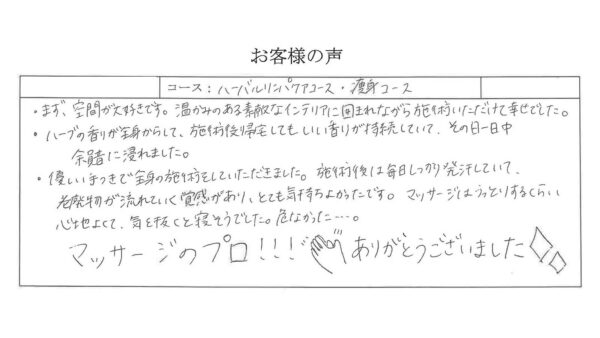 お客様の声
コース：ハーバルリンパケアコース・痩身コース
・まず、空間が大好きです。温かみのある素敵なインテリアに囲まれながら施術いただけて幸せでした。
・ハーブの香りが全身からして、施術後帰宅してもいい香りが持続していて、その日一日中
余韻に浸れました。
・優しい手つきで全身の施術をしていただきました。施術後は毎日しっかり発汗していて、
老廃物が流れていく感覚があり、とても気持ちよかったです。マッサージはうっとりするくらい
心地よくて、気を抜くと寝そうでした。危なかった…。
マッサージのプロ!!! ありがとうございました